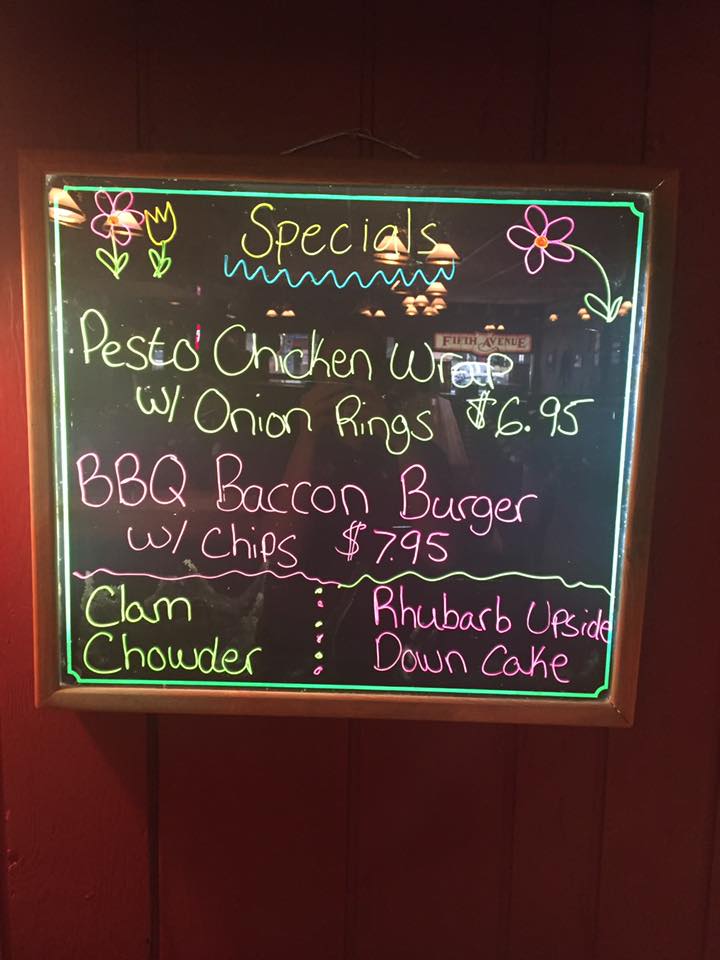 Specials
FIFTH AVENUE
Pesto Chicken Wrap
w/ Onion Rings $6.95
BBQ Baccon Burger
w/ Chips $7.95
Clam
Chowder
Rhubarb Upside
Down Cake